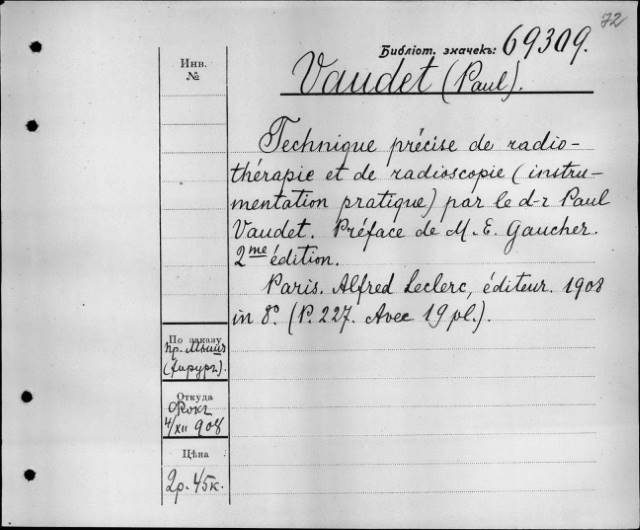 72
Библіот. значекъ: 69309.
Инв.
№
Vaudet (Paul).
Technique précise de radio-
thérapie et de radioscopie (instru-
mentation pratique) par le d-r Paul
Vaudet. Préface de M. E. Gaucher.
2me édition.
Paris. Alfred Leclerc, éditeur. 1908
in 8°. (P. 227. Avec 19 pl.).
По заказу
пр. Мыш
(хирург.).
Откуда
Фокъ
4/XII 908
Цѣна
2р. 45к.